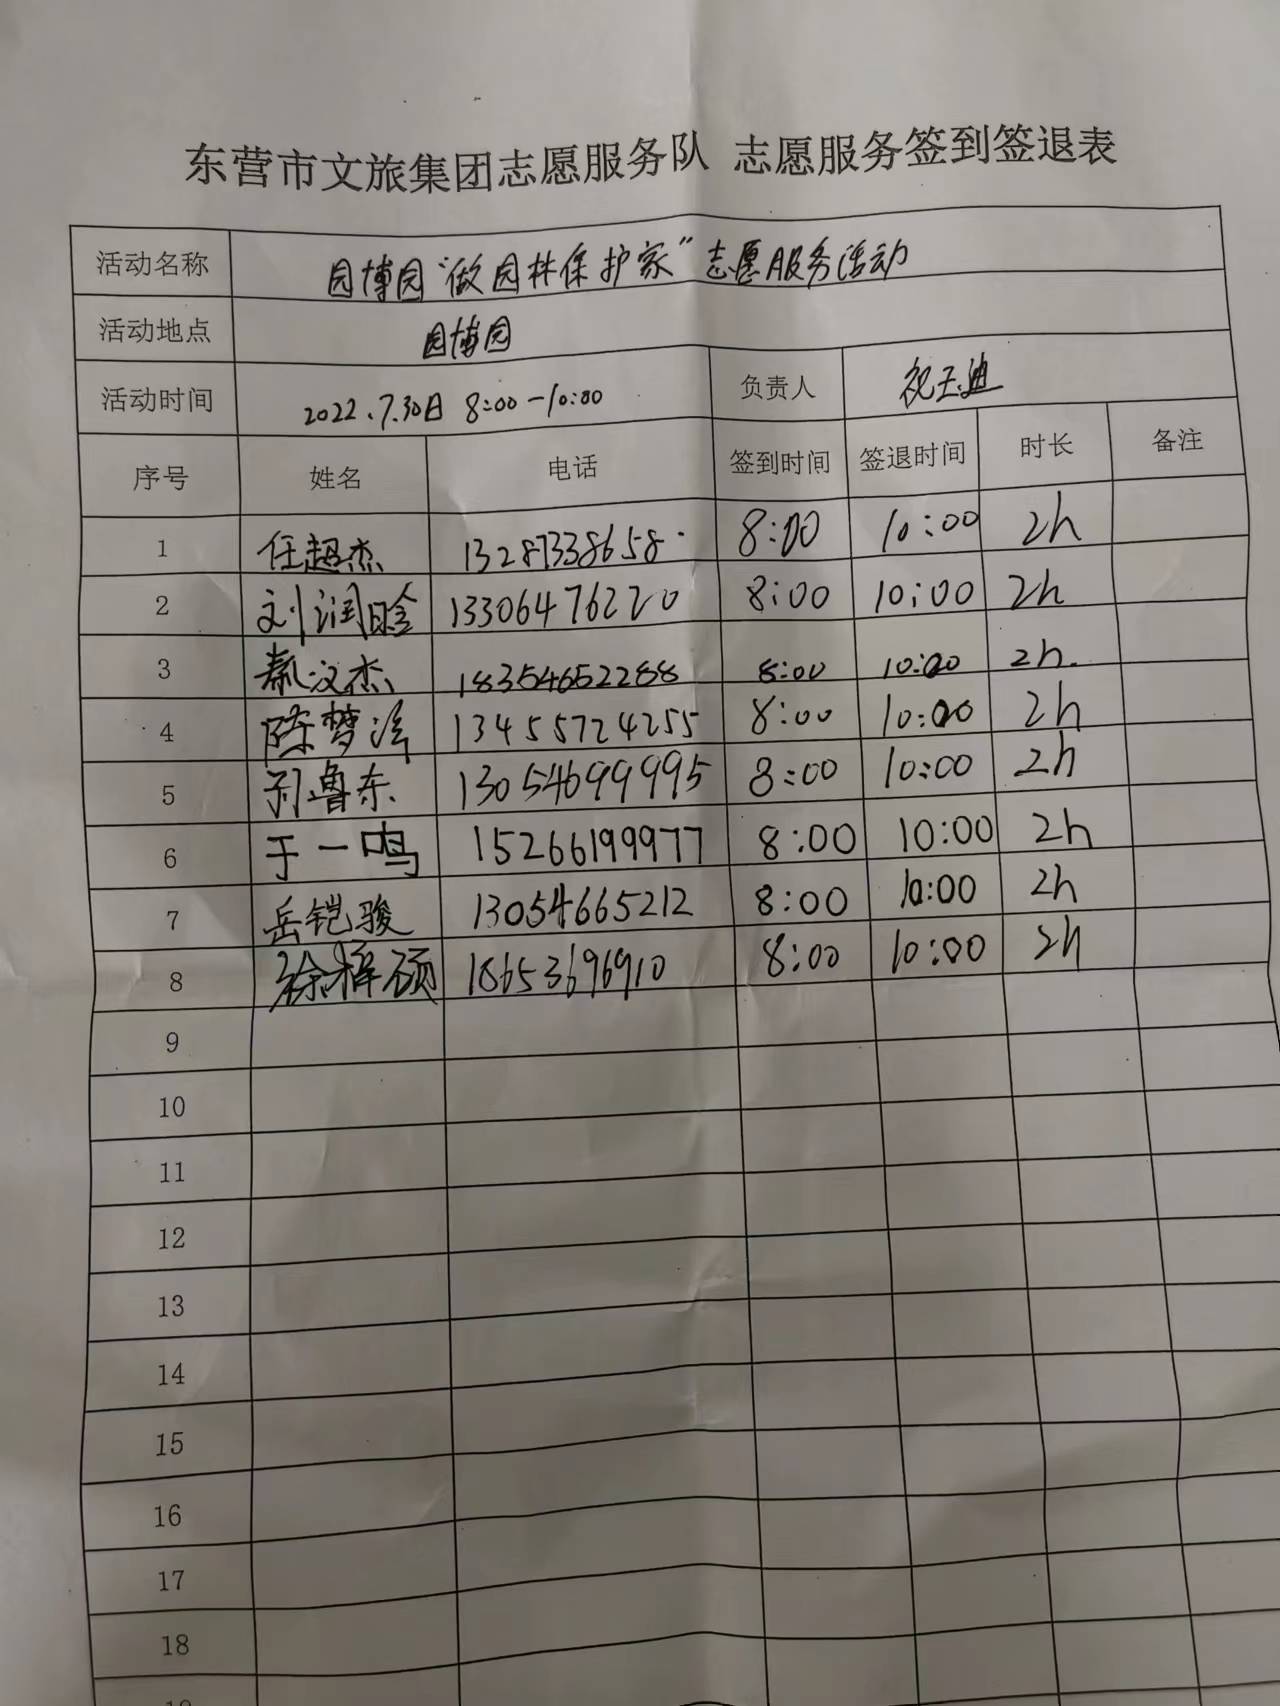 东营市文旅集团志愿服务队 志愿服务签到签退表
活动名称 园博园“做园林保护家”志愿服务活动
活动地点 园博园
活动时间 2022.7.30日 8:00-10:00 负责人 祝玉迪
序号 姓名 电话 签到时间 签退时间 时长 备注
1 任超杰 13287338658 8:00 10:00 2h
2 刘润晗 13306476220 8:00 10:00 2h
3 秦汉杰 18354652288 8:00 10:00 2h.
4 陈梦泽 13455724255 8:00 10:00 2h
5 鲁东 13054699995 8:00 10:00 2h
6 于一鸣 15266199977 8:00 10:00 2h
7 岳铠骏 13054665212 8:00 10:00 2h
8 徐梓硕 18653696910 8:00 10:00 2h
9
10
11
12
13
14
15
16
17
18